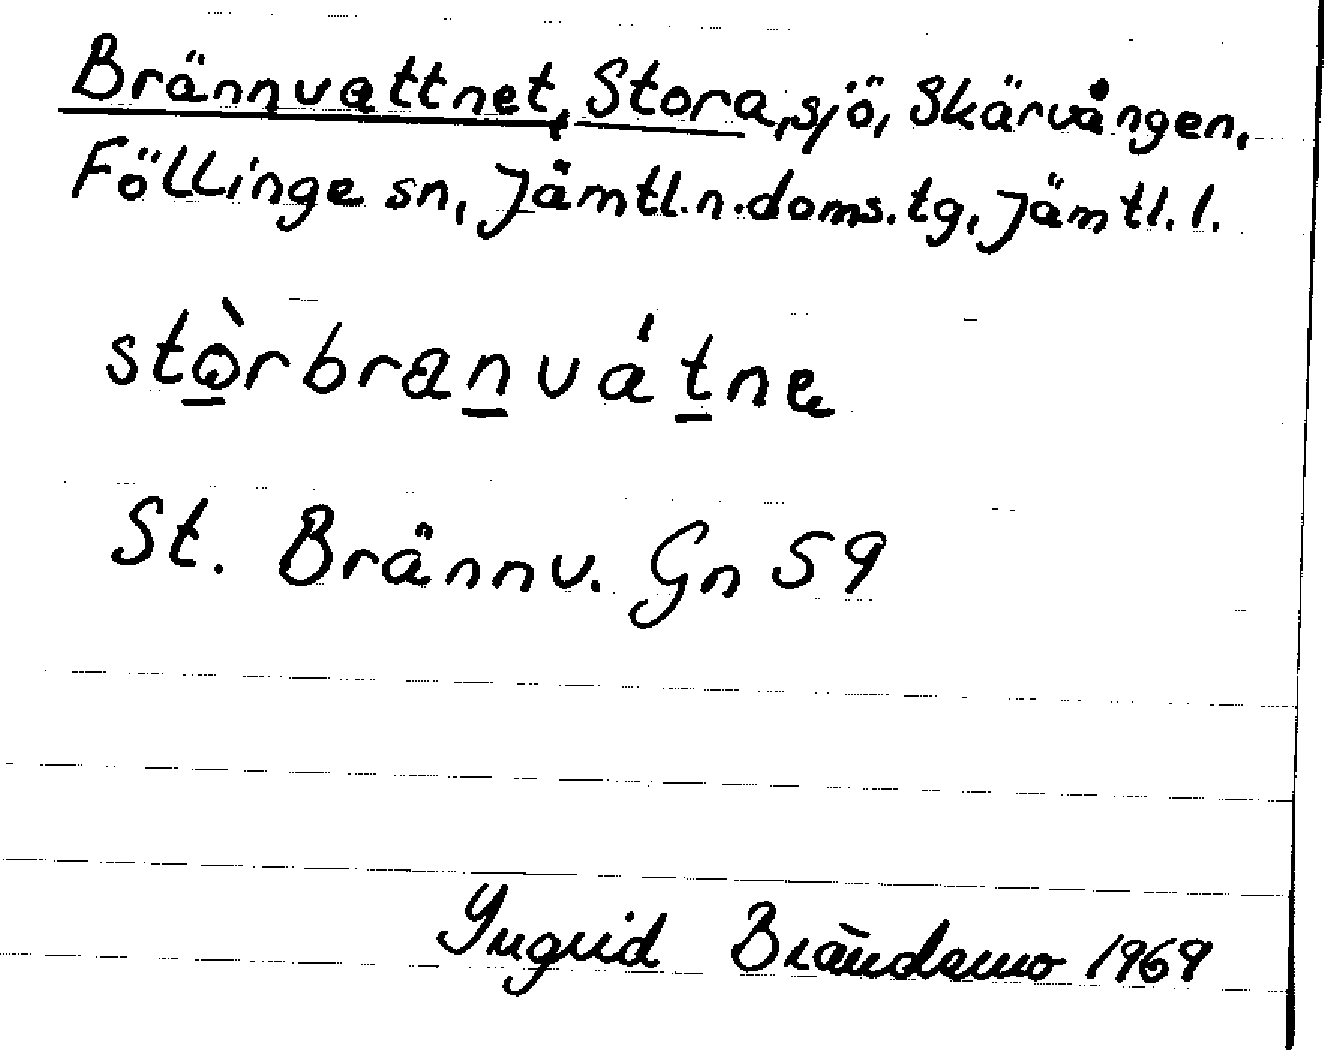 Brännvattnet, Stora, sjö, Skärvången,
Föllinge sn, Jämtl.n.doms.tg, Jämtl.l.
stò̱rbraṉváṯne
St. Brännv. Gn 59
Yngrid Brändamo 1969